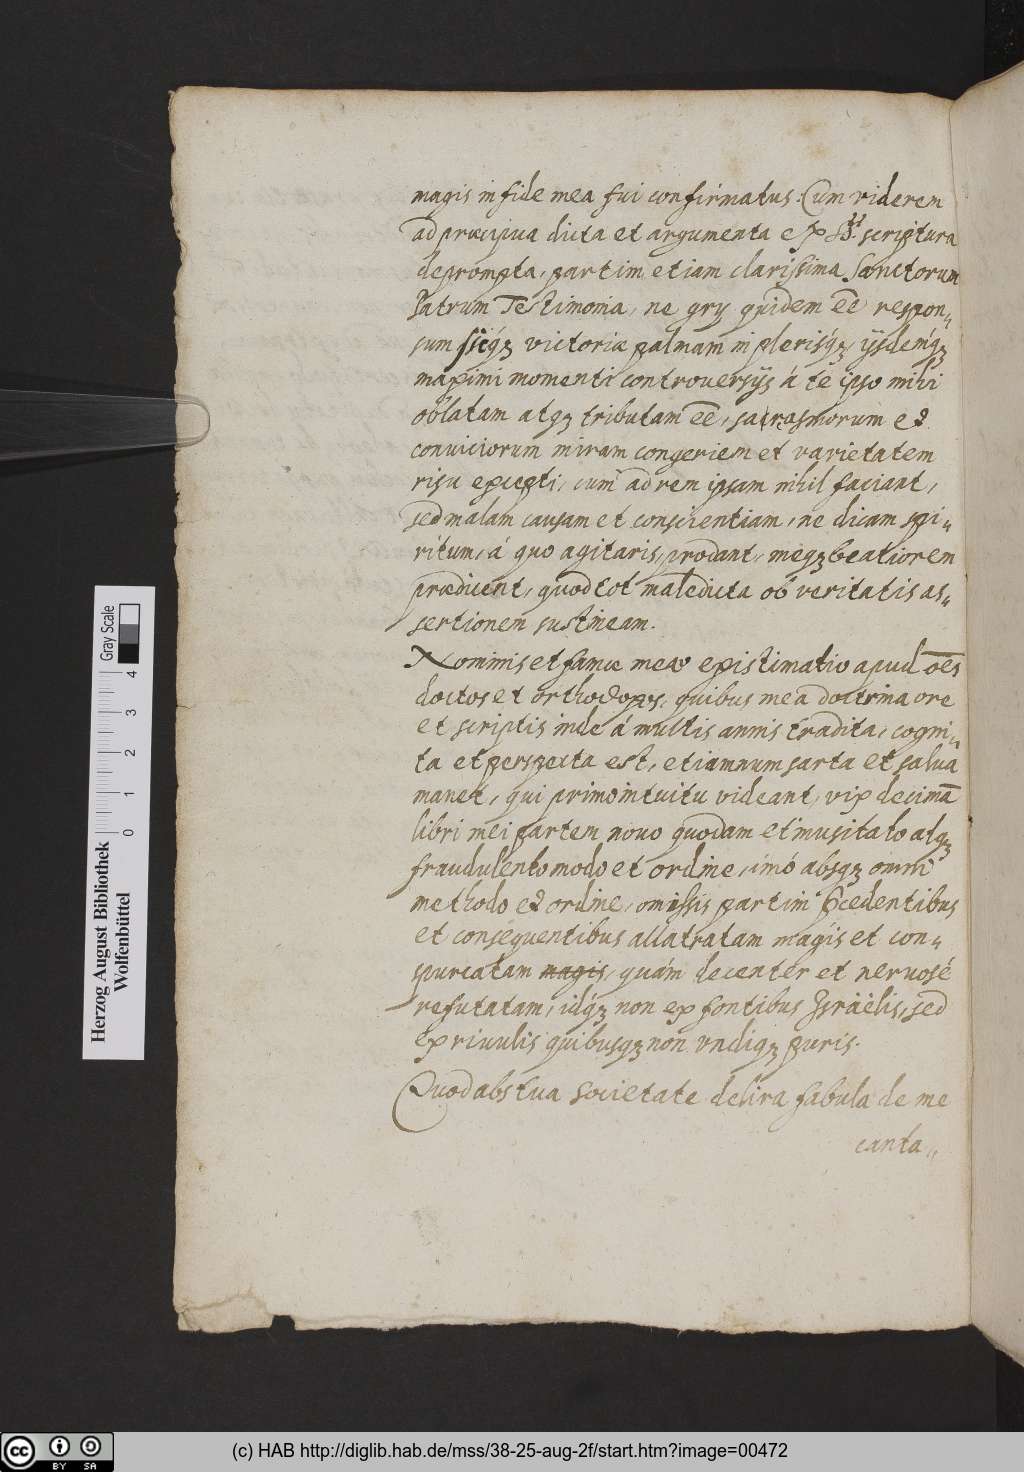 magis in fide mea fui confirmatus. Cum viderem
ad præcipua dicta et argumenta ex S. scriptura
deprompta, partim etiam clarissima Sanctorum
Patrum Testimonia, ne gry quidem eē respon„
sum sicq́ꝫ victoriæ palmam in plerisq́ꝫ, ijsdemq́ꝫ
maximi momenti controversijs á te ipso mihi
oblatam atqꝫ tributam eē, sarcasmorum et
conviciorum miram congeriem et varietatem
risu excepti, cum ad rem ipsam nihil faciant,
sed malam causam et conscientiam, ne dicam spi„
ritum, á quo agitaris, prodant, meqꝫ beatiorem
prædicent, quod tot maledicta ob veritatis as„
sertionem sustineam.
Nominis et famæ meæ existimatio apud oēs
doctos et orthodoxos, quibus mea doctrina ore
et scriptis inde á multis annis tradita, cogni„
ta et perspecta est, etiamnum sarta et salva
manet, qui primo intuitu videant, vix decimā
libri mei partem novo quodam et inusitato atqꝫ
fraudulento modo et ordine, imó absqꝫ omni
methodo et ordine, omissis partim p̄cedentibus
et consequentibus allatratam magis et con„
spurcatam magis, quám decenter et nervosé
refutatam, idq́ꝫ non ex fontibus Israëlis, sed
ex rivulis quibusqꝫ non undiqꝫ puris.
Quod abs tua societate delira fabula de me
canta„
Herzog August Bibliothek
Wolfenbüttel
0 1 2 3 4
Gray Scale
cc BY SA
(c) HAB http://diglib.hab.de/mss/38-25-aug-2f/start.htm?image=00472